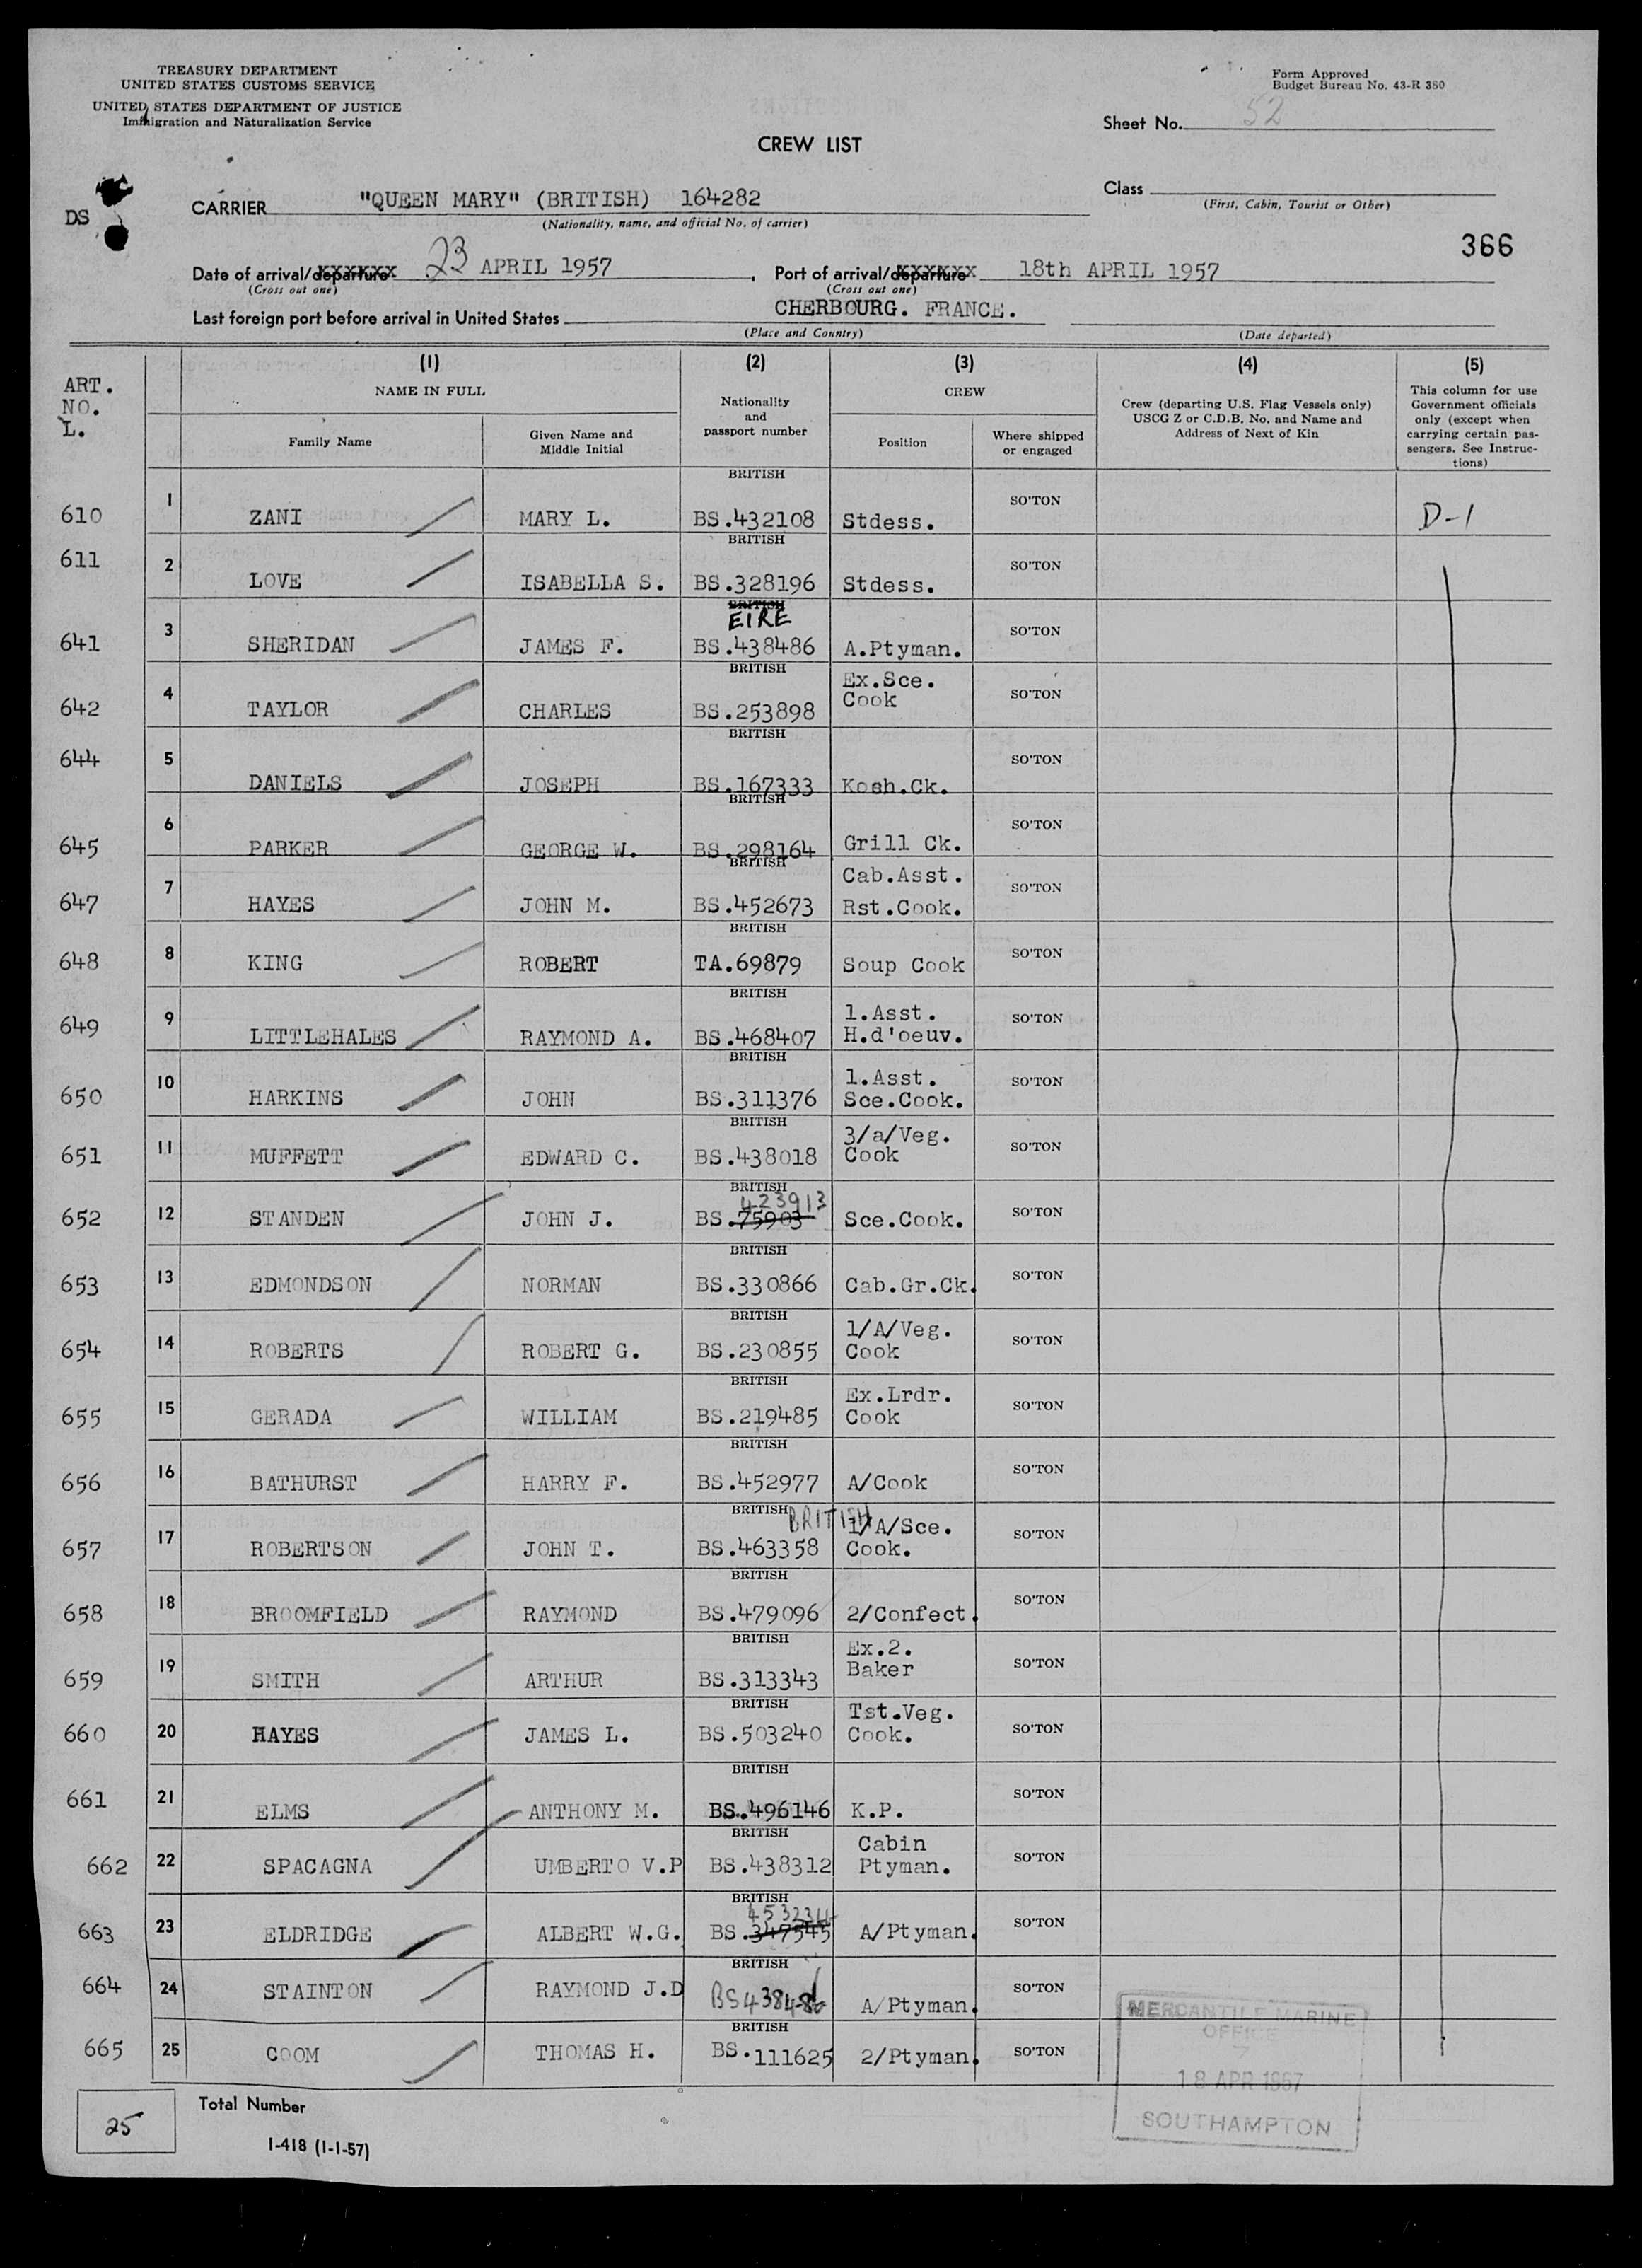 TREASURY DEPARTMENT
UNITED STATES CUSTOMS SERVICE
UNITED STATES DEPARTMENT OF JUSTICE
Immigration and Naturalization Service
Form Approved
Budget Bureau No. 43-R 350
Sheet No. 52
CREW LIST
Class
(First, Cabin, Tourist or Other)
DS
CARRIER "QUEEN MARY" (BRITISH) 164282
(Nationality, name, and official No. of carrier)
366
Date of arrival/departure 23 APRIL 1957, Port of arrival/departure 18th APRIL 1957
(Cross out one) (Cross out one)
Last foreign port before arrival in United States CHERBOURG. FRANCE.
(Place and Country) (Date departed)
ART. NO. L.
(1) (2) (3) (4) (5)
NAME IN FULL
Family Name
Given Name and Middle Initial
Nationality and passport number
CREW
Position
Where shipped or engaged
Crew (departing U.S. Flag Vessels only) USCG Z or C.D.B. No. and Name and Address of Next of Kin
This column for use Government officials only (except when carrying certain passengers. See Instructions)
610 1 ZANI MARY L. BRITISH BS.432108 Stdess. SO'TON D-1
611 2 LOVE ISABELLA S. BRITISH BS.328196 Stdess. SO'TON
641 3 SHERIDAN JAMES F. BRITISH EIRE BS.438486 A.Ptyman. SO'TON
642 4 TAYLOR CHARLES BRITISH BS.253898 Ex.Sce. Cook SO'TON
644 5 DANIELS JOSEPH BRITISH BS.167333 Kosh.Ck. SO'TON
645 6 PARKER GEORGE W. BRITISH BS.298164 Grill Ck. SO'TON
647 7 HAYES JOHN M. BRITISH BS.452673 Cab.Asst. Rst.Cook. SO'TON
648 8 KING ROBERT BRITISH TA.69879 Soup Cook SO'TON
649 9 LITTLEHALES RAYMOND A. BRITISH BS.468407 1.Asst. H.d'oeuv. SO'TON
650 10 HARKINS JOHN BRITISH BS.311376 1.Asst. Sce.Cook. SO'TON
651 11 MUFFETT EDWARD C. BRITISH BS.438018 3/a/Veg. Cook SO'TON
652 12 STANDEN JOHN J. BRITISH 423913 BS.75903 Sce.Cook. SO'TON
653 13 EDMONDSON NORMAN BRITISH BS.330866 Cab.Gr.Ck. SO'TON
654 14 ROBERTS ROBERT G. BRITISH BS.230855 1/A/Veg. Cook SO'TON
655 15 GERADA WILLIAM BRITISH BS.219485 Ex.Lrdr. Cook SO'TON
656 16 BATHURST HARRY F. BRITISH BS.452977 A/Cook SO'TON
657 17 ROBERTSON JOHN T. BRITISH BRITISH BS.463358 1/A/Sce. Cook. SO'TON
658 18 BROOMFIELD RAYMOND BRITISH BS.479096 2/Confect. SO'TON
659 19 SMITH ARTHUR BRITISH BS.313343 Ex.2. Baker SO'TON
660 20 HAYES JAMES L. BRITISH BS.503240 Tst.Veg. Cook. SO'TON
661 21 ELMS ANTHONY M. BRITISH BS.496146 K.P. SO'TON
662 22 SPACAGNA UMBERTO V.P BRITISH BS.438312 Cabin Ptyman. SO'TON
663 23 ELDRIDGE ALBERT W.G. BRITISH BS.347545 A/Ptyman. SO'TON
664 24 STAINTON RAYMOND J.D BRITISH A/Ptyman. SO'TON
665 25 COOM THOMAS H. BRITISH BS.111625 2/Ptyman. SO'TON
MERCANTILE MARINE
OFFICE
7
18 APR 1957
SOUTHAMPTON
25
Total Number
I-418 (1-1-57)